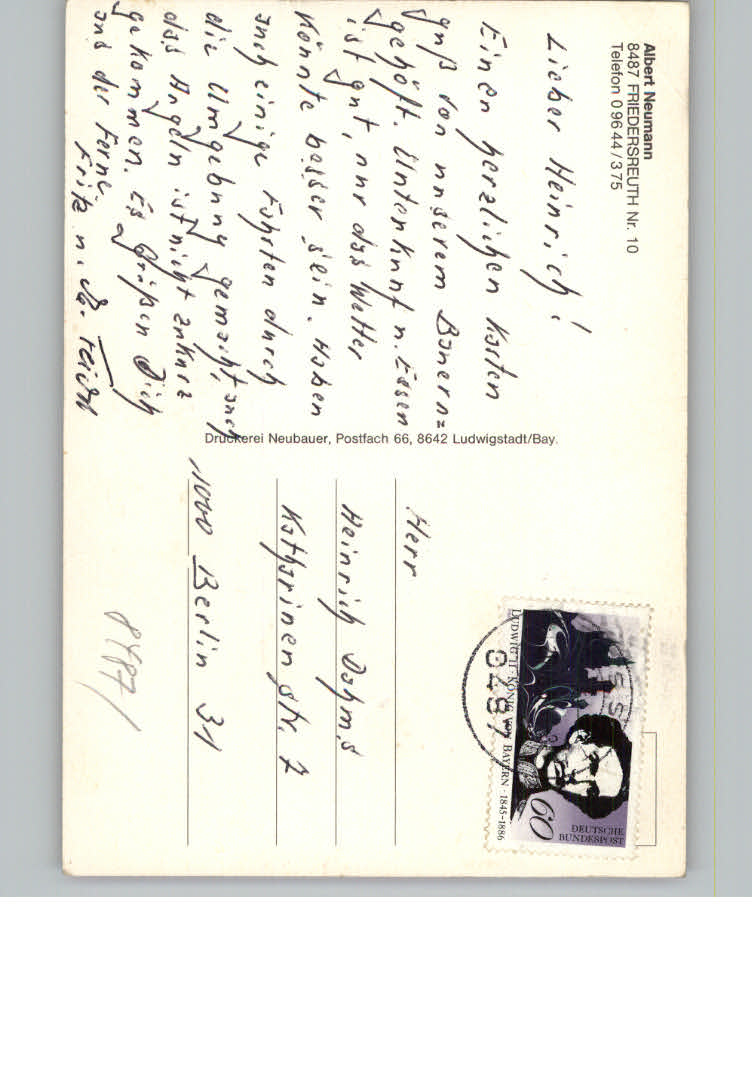 Albert Neumann
8487 FRIEDERSREUTH Nr. 10
Telefon 0 96 44 / 3 75
Lieber Heinrich!
Einen herzlichen Karten
gruß von unserem Bauern=
gehöft. Unterkunft u. Essen
ist gut, nur das Wetter
könnte besser sein. Haben
auch einige Fahrten durch
die Umgebung gemacht, auch
das Angeln ist nicht zu kurz
gekommen. Es grüßen Dich
aus der Ferne
Fritz u.
Druckerei Neubauer, Postfach 66, 8642 Ludwigstadt/Bay.
DEUTSCHE
BUNDESPOST
60
LUDWIG II · KÖNIG VON BAYERN · 1845-1886
8487
Herr
Heinrich Dahms
Katharinenstr. 7
1000 Berlin 31
8487/